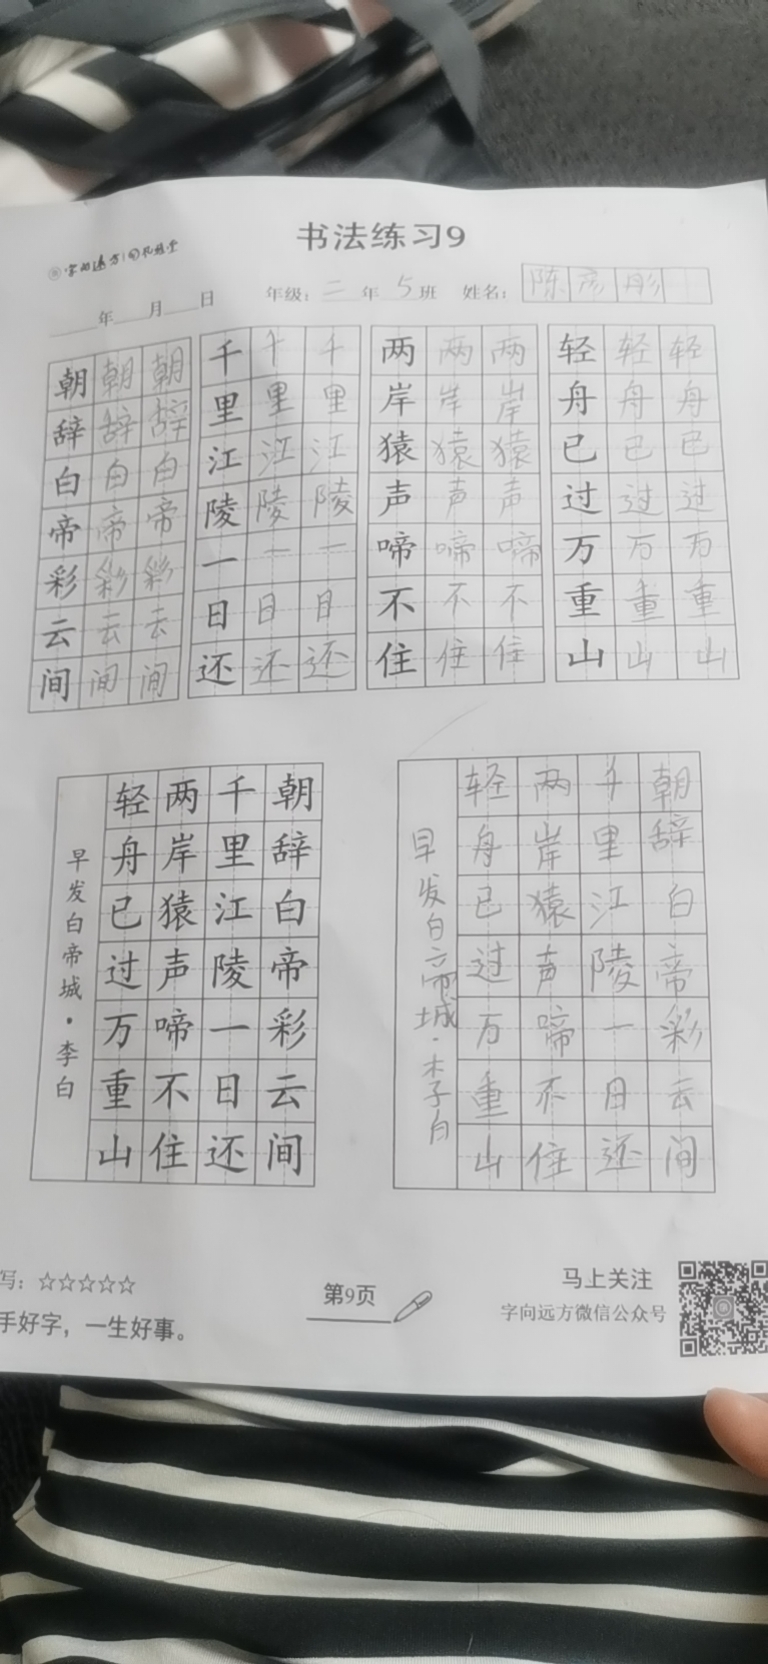 书法练习9
字向远方
年 月 日 年级：二年5班 姓名：陈彦彤
朝朝朝
辞辞辞
白白白
帝帝帝
彩彩彩
云云云
间间间
千千千
里里里
江江江
陵陵陵
一一一
日日日
还还还
两两两
岸岸岸
猿猿猿
声声声
啼啼啼
不不不
住住住
轻轻轻
舟舟舟
已已已
过过过
万万万
重重重
山山山
朝辞白帝彩云间
千里江陵一日还
两岸猿声啼不住
轻舟已过万重山
早发白帝城·李白
朝辞白帝彩云间
千里江陵一日还
两岸猿声啼不住
轻舟已过万重山
早发白帝城·李白
写：☆☆☆☆☆
手好字，一生好事。
第9页
马上关注
字向远方微信公众号